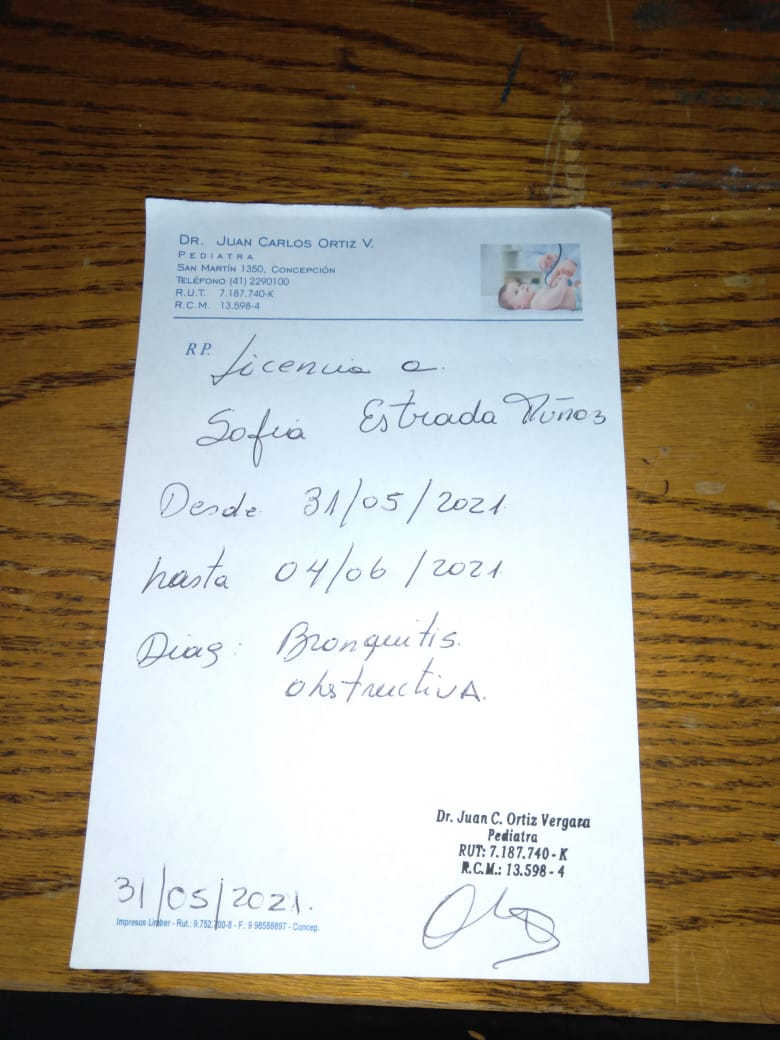 DR. JUAN CARLOS ORTIZ V.
PEDIATRA
SAN MARTÍN 1350, CONCEPCIÓN
TELÉFONO (41) 2290100
R.U.T. 7.187.740-K
R.C.M. 13.598-4
RP.
Licencia a
Sofia Estrada Muñoz
Desde 31/05/2021
hasta 04/06/2021
Diag: Bronquitis
obstructiva.
Dr. Juan C. Ortiz Vergara
Pediatra
RUT: 7.187.740-K
R.C.M.: 13.598-4
31/05/2021.
Impresos Limber - Rut.: 9.752.700-8 - F.: 9 98588897 - Concep.